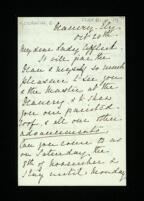 Deanery. Ely.
Oct 20th.
My dear Lady
It will give the
Dean & myself so much
pleasure to see you
& the Master at the
Deanery, & to show
you our painted
roof & all our other
advancements.
Can you come to us
on Saturday the
9th of November &
stay until Monday